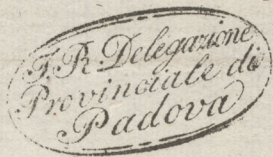 I. R. Delegazione
Provinciale di
Padova